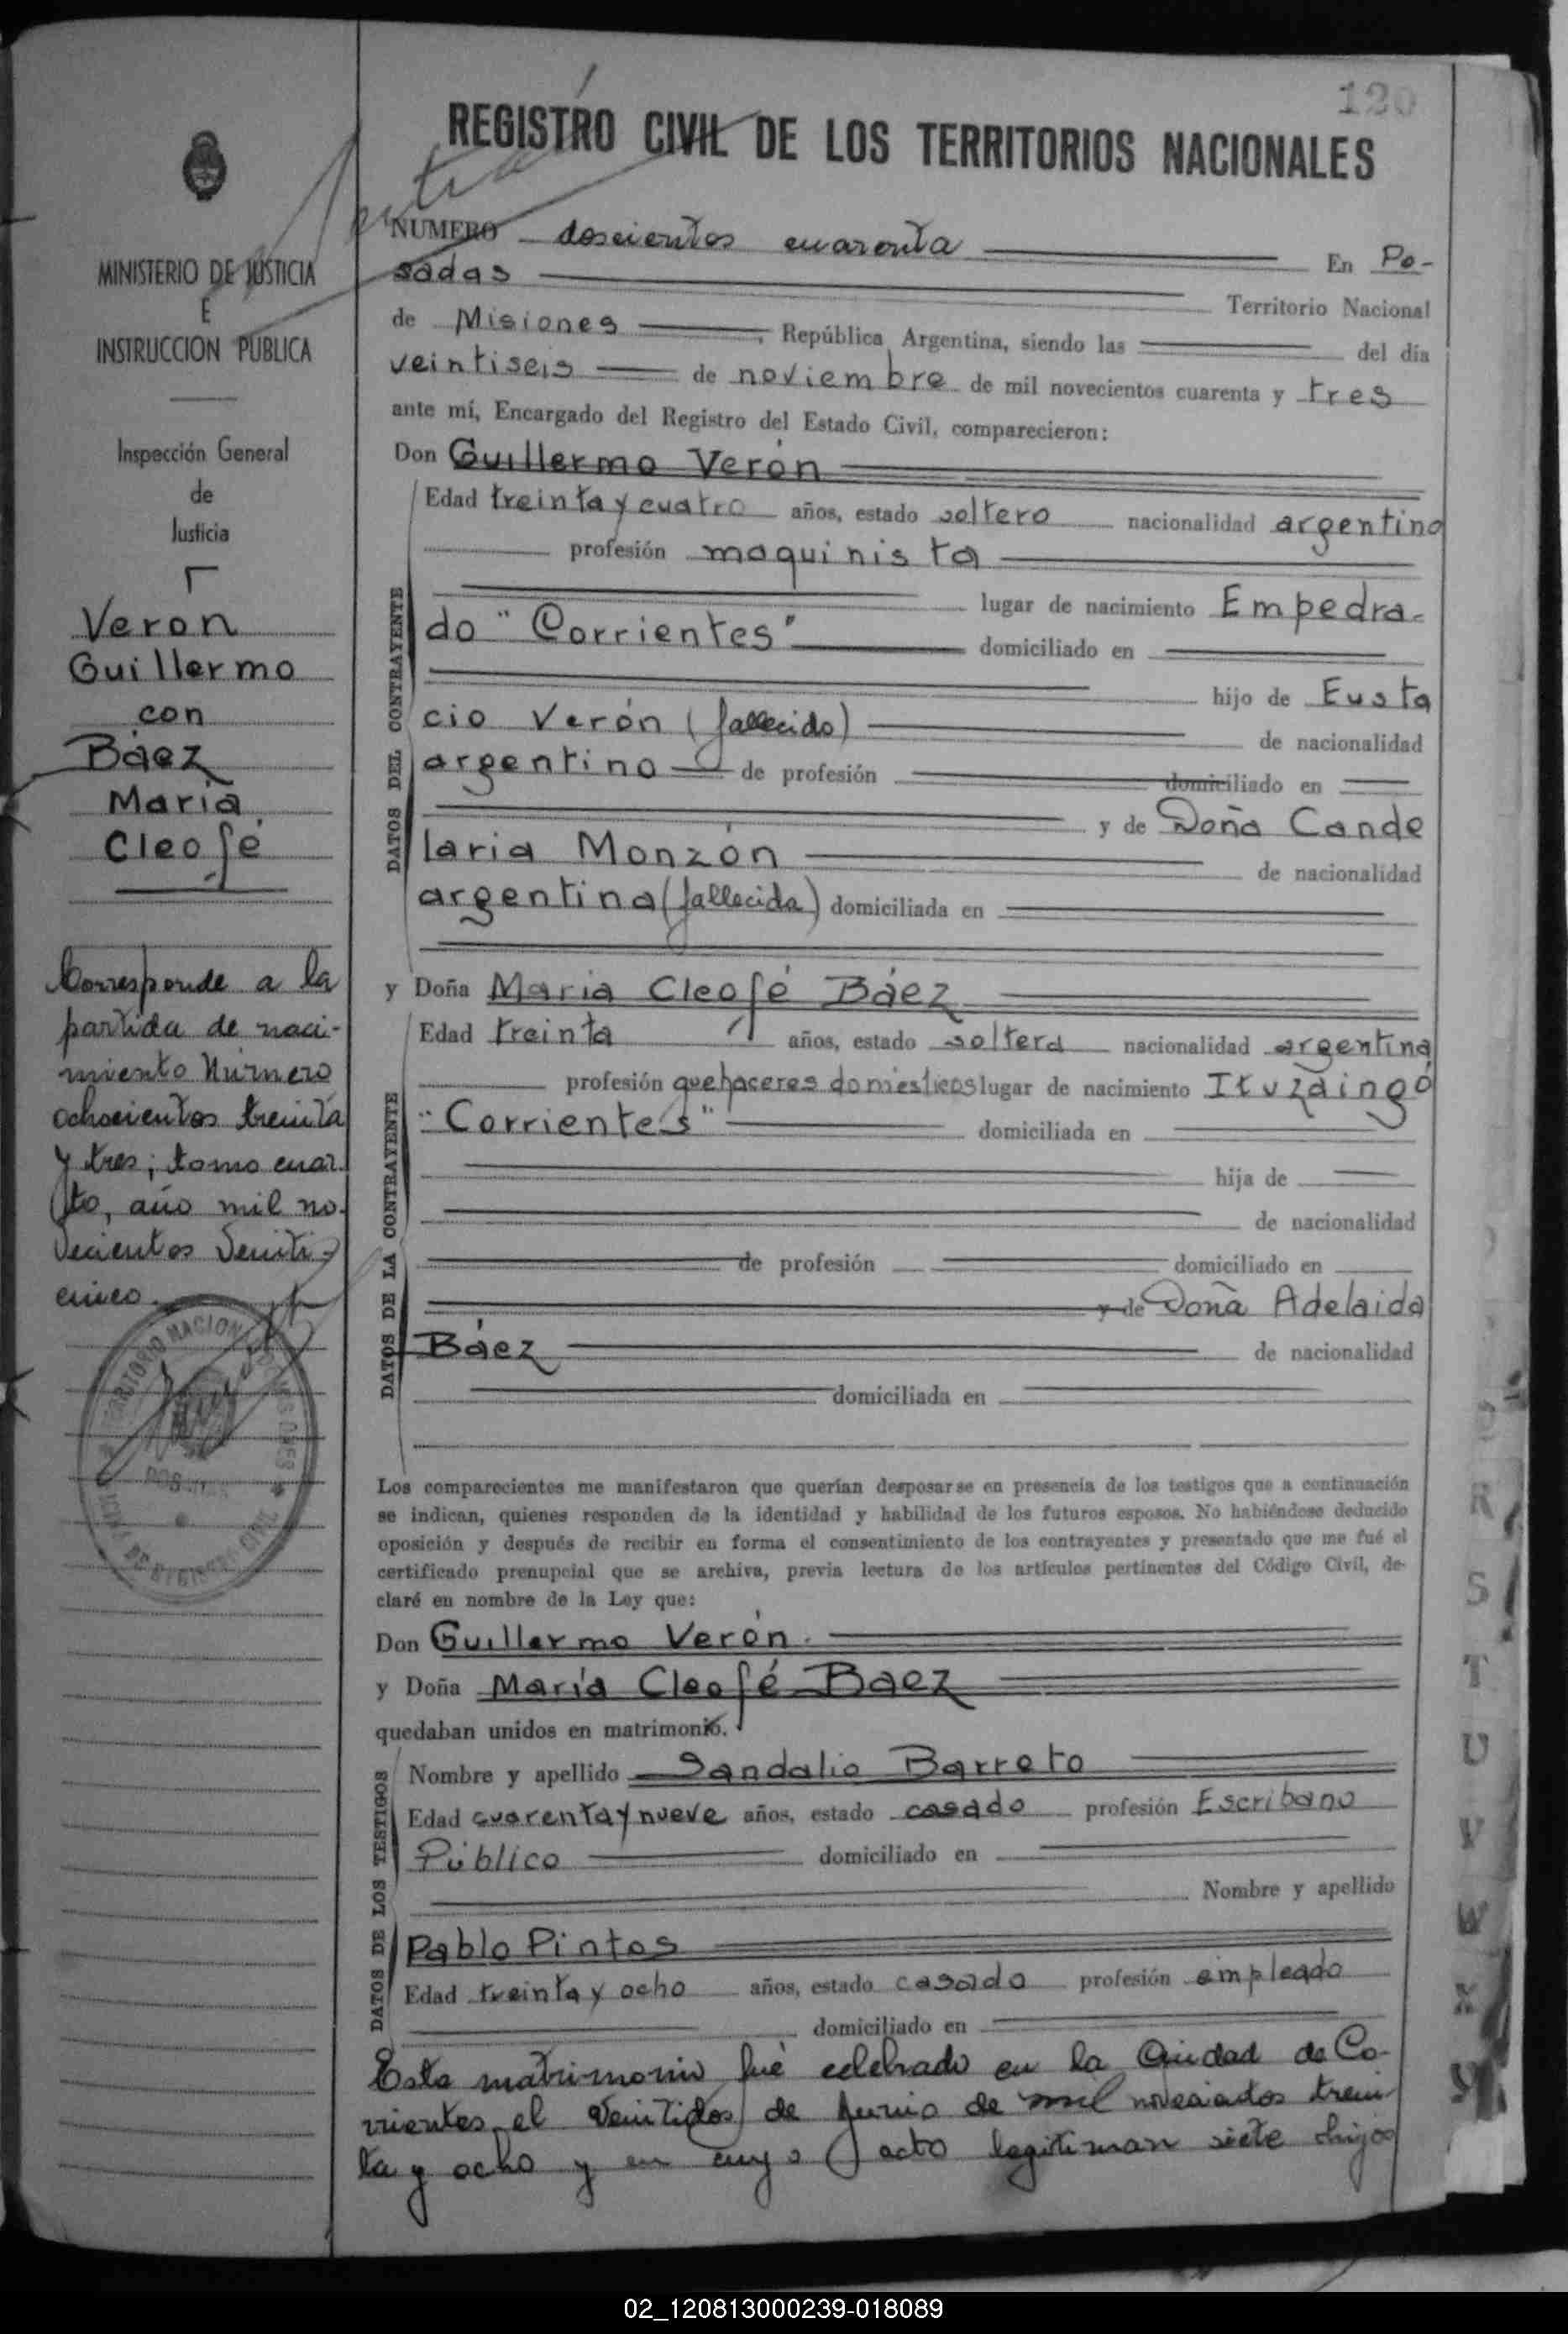 120
REGISTRO CIVIL DE LOS TERRITORIOS NACIONALES
MINISTERIO DE JUSTICIA
E
INSTRUCCION PUBLICA
Inspección General
de
Justicia
Verón
Guillermo
con
Báez
María
Cleofé
Corresponde a la
partida de naci-
miento Número
ochocientos treinta
y tres; tomo cuar
to, año mil no-
vecientos veinti-
cinco.
NUMERO doscientos cuarenta En Po-
sadas Territorio Nacional
de Misiones, República Argentina, siendo las del día
veintiseis de noviembre de mil novecientos cuarenta y tres
ante mí, Encargado del Registro del Estado Civil, comparecieron:
Don Guillermo Verón
DATOS DEL CONTRAYENTE
Edad treinta y cuatro años, estado soltero nacionalidad argentino
profesión maquinista
lugar de nacimiento Empedra-
do "Corrientes" domiciliado en
hijo de Eusta
cio Verón (fallecido) de nacionalidad
argentino de profesión domiciliado en
y de Doña Cande
laria Monzón de nacionalidad
argentina (fallecida) domiciliada en
y Doña María Cleofé Báez
DATOS DE LA CONTRAYENTE
Edad treinta años, estado soltera nacionalidad argentina
profesión quehaceres domésticos lugar de nacimiento Ituzaingó
"Corrientes" domiciliada en
hija de
de nacionalidad
de profesión domiciliado en
y de Doña Adelaida
Báez de nacionalidad
domiciliada en
Los comparecientes me manifestaron que querían desposarse en presencia de los testigos que a continuación
se indican, quienes responden de la identidad y habilidad de los futuros esposos. No habiéndose deducido
oposición y después de recibir en forma el consentimiento de los contrayentes y presentado que me fué el
certificado prenupcial que se archiva, previa lectura de los artículos pertinentes del Código Civil, de-
claré en nombre de la Ley que:
Don Guillermo Verón.
y Doña María Cleofé Baez
quedaban unidos en matrimonio.
DATOS DE LOS TESTIGOS
Nombre y apellido Sandalio Barreto
Edad cuarenta y nueve años, estado casado profesión Escribano
Público domiciliado en
Nombre y apellido
Pablo Pintos
Edad treinta y ocho años, estado casado profesión empleado
domiciliado en
Este matrimonio fué celebrado en la Ciudad de Co-
rrientes, el veintidos de Junio de mil novecientos trein
ta y ocho y en cuyo acto legitiman siete hijos
R
S
T
U
V
W
X
Y
02_120813000239-018089